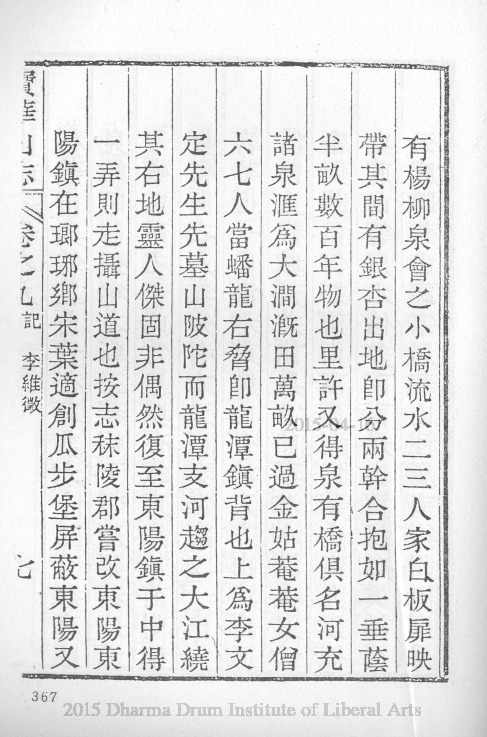 有楊柳泉會之小橋流水二三人家白板扉映
帶其間有銀杏出地卽分兩幹合抱如一垂蔭
半畝數百年物也里許又得泉有橋俱名河充
諸泉滙爲大澗漑田萬畝已過金姑菴菴女僧
六七人當蟠龍右脅卽龍潭鎮背也上爲李文
定先生先墓山陂陀而龍潭支河趨之大江繞
其右地靈人傑固非偶然復至東陽鎮于中得
一弄則走攝山道也按志秣陵郡嘗改東陽東
陽鎮在瑯琊鄉宋葉適創瓜步堡屏蔽東陽又
寶華山志 卷之九 記 李維徵 七
2015-04-16
367
2015 Dharma Drum Institute of Liberal Arts